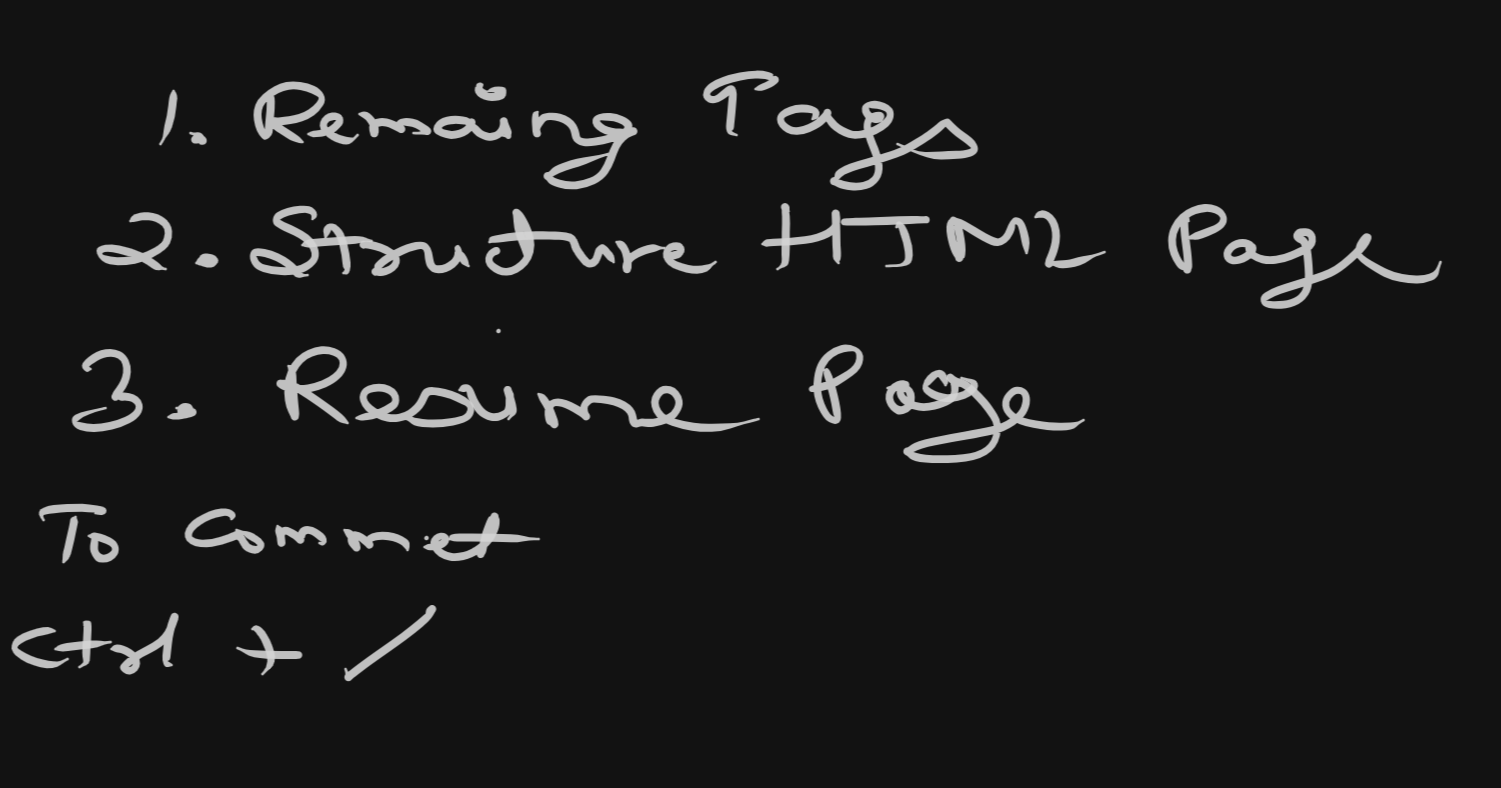 1. Remaing Tags
2. Structure HTML Page
3. Resume Page
To Commet
Ctrl + /